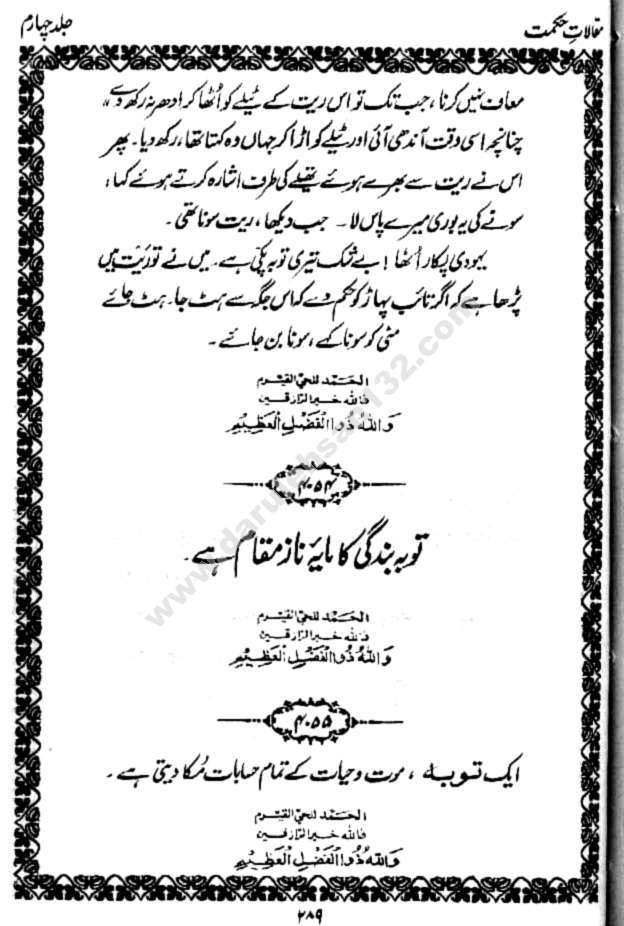 مقالاتِ حکمت
جلد چہارم
معاف نہیں کرنا، جب تک تو اس ریت کے ٹیلے کو اُٹھا کر ادھر نہ رکھ دے،
چنانچہ اسی وقت آندھی آئی اور ٹیلے کو اڑا کر جہاں وہ کہتا تھا، رکھ دیا۔ پھر
اس نے ریت سے بھرے ہوئے تھیلے کی طرف اشارہ کرتے ہوئے کہا:
سونے کی یہ بوری میرے پاس لا۔ جب دیکھا، ریت سونا تھی۔
یہودی پکار اُٹھا! بے شک تیری توبہ پکی ہے۔ میں نے توریت میں
پڑھا ہے کہ اگر تائب پہاڑ کو حکم دے کہ اس جگہ سے ہٹ جا۔ ہٹ جائے
مٹی کو سونا کہے، سونا بن جائے۔
الحمد للحی القیوم
فاللہ خیر الرازقین
وَاللّٰهُ ذُو الْفَضْلِ الْعَظِيْمِ
۴۰۵۴
توبہ بندگی کا مایۂ ناز مقام ہے۔
الحمد للحی القیوم
فاللہ خیر الرازقین
وَاللّٰهُ ذُو الْفَضْلِ الْعَظِيْمِ
۴۰۵۵
ایک توبہ، موت و حیات کے تمام حسابات مُکا دیتی ہے۔
الحمد للحی القیوم
فاللہ خیر الرازقین
وَاللّٰهُ ذُو الْفَضْلِ الْعَظِيْمِ
۲۸۹
www.darulehsan132.com